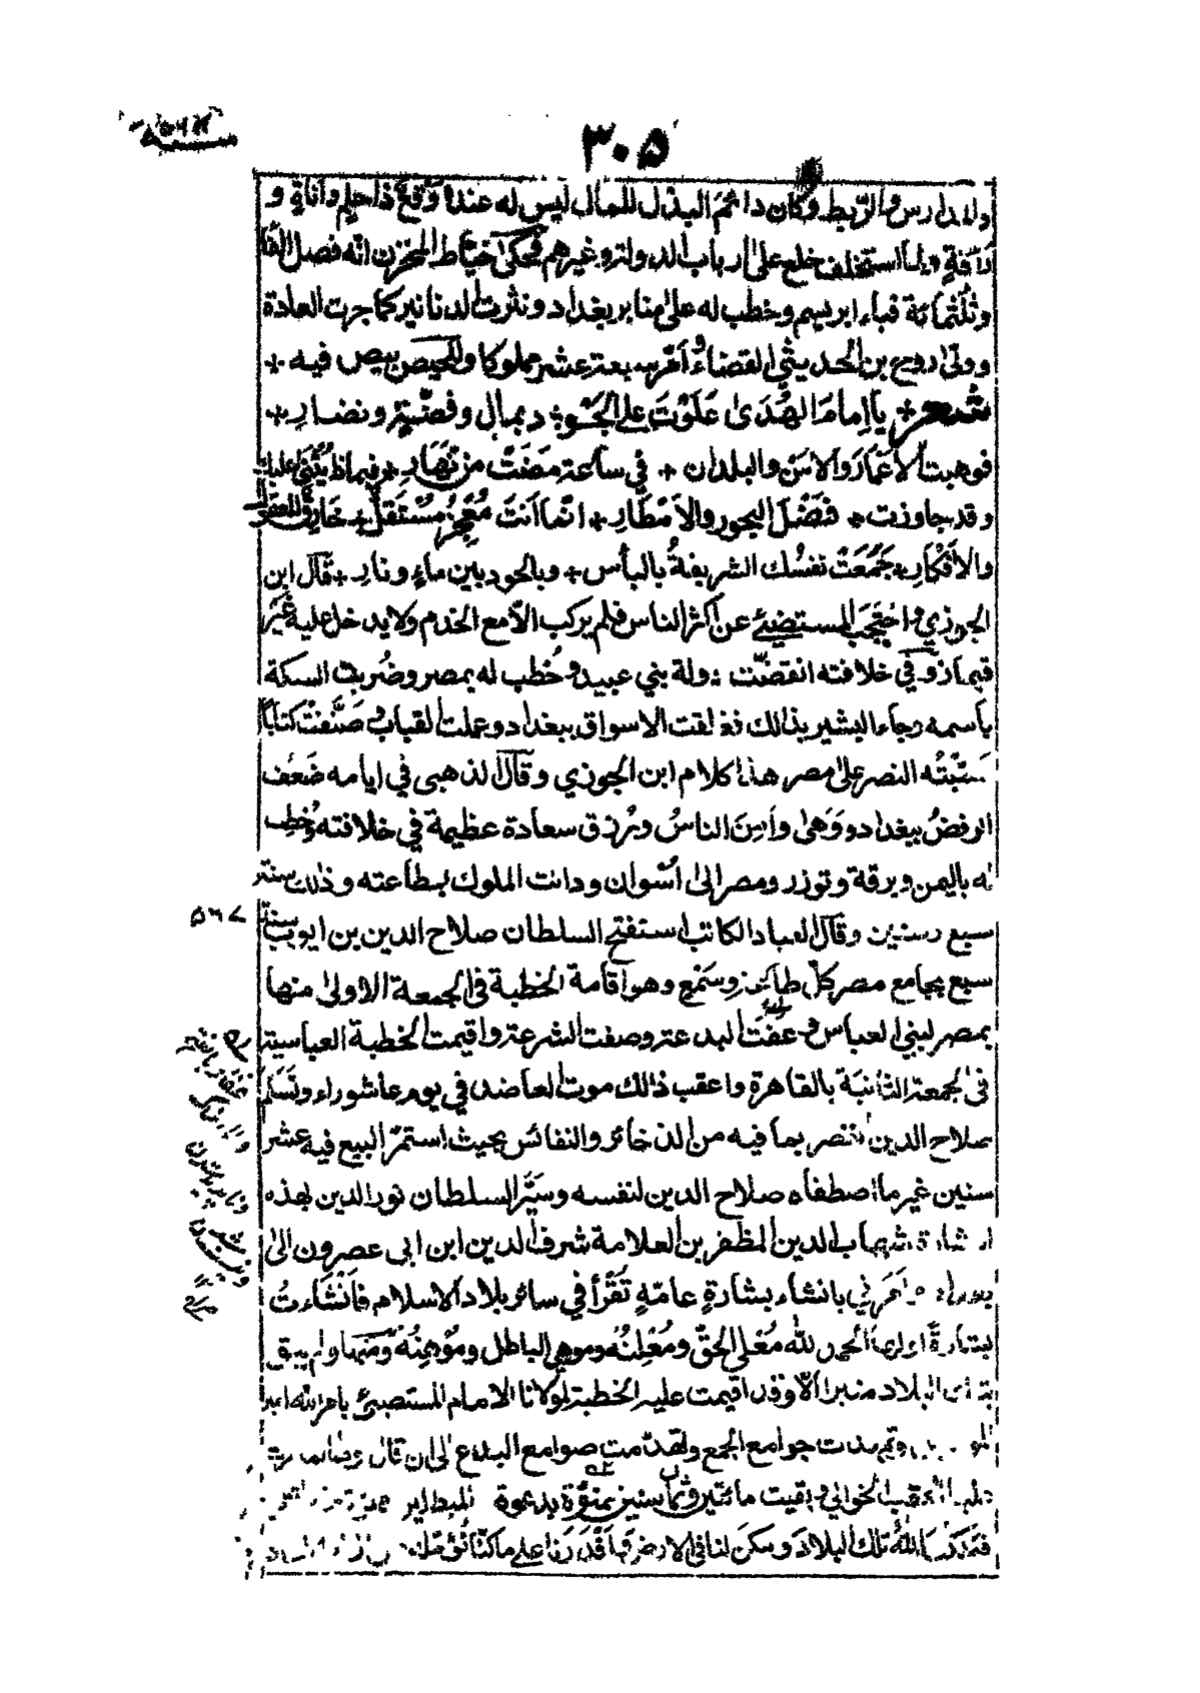 ٣٠٥
والمدارس والرّبط وكان دائم البذل للمال ليس له عنده وَقعٌ ذا حلم واناةٍ و
رَأفةٍ ولما استخلف خلع على ارباب الدولة وغيرهم فحكى خياط المخزن انه فصل الفا
وثلثمائة قباء ابريسم وخطب له على منابر بغداد ونثرت الدنانير كما جرت العادة
وولّى روح بن الحديثي القضاء وأمّر سبعة عشر مملوكا وللحيص بيص فيه +
شعر + يا اِمامَ الهُدَى عَلَوْتَ على الجَود بمالٍ وفضّةٍ ونضارِ +
فوهبت الاَعْمَارَ والاَمنَ والبلدان + في ساعةٍ مَضَتْ من نَهَارِ + فبماذا يُثنَى عليك
وقد جاوزت + فَضْلَ البحور والاَمطارِ + انّما اَنتَ مُعْجِزٌ مُسْتَقِلٌّ + خارقٌ للعقول
والاَفكارِ + جَمَعَتْ نفسُك الشريفةُ بالبأس + وبالجود بين ماءٍ ونارِ + قال ابن
الجوزي واحتجب المستضيئ عن اكثر الناس فلم يركب الاّ مع الخدم ولا يدخل عليه غيرُ
قيماز وفي خلافته انقضت دولة بني عبيد وخُطب له بمصر وضُربت السكة
باسمه وجاء البشير بذالك فغلقت الاسواق ببغداد وعملت القباب وصَنَّفتُ كتاباً
سَمّيتُه النصر على مصر هذا كلام ابن الجوزي وقال الذهبى في ايامه ضَعُف
الرفضُ ببغداد ووَهى وأمِنَ الناسُ ورُزق سعادة عظيمة في خلافته وخُطِب
له باليمن وبرقة وتوزر ومصر الى اُسْوان ودانت الملوك بطاعته وذلك سنة
٥٦٧
سبع وستين وقال العماد الكاتب استفتح السلطان صلاح الدين بن ايوب سنة
سبع بجامع مصر كلّ طاعةٍ وسَمْعٍ وهو اقامة الخطبة فى الجمعة الاولىٰ منها
بمصر لبني العباس وعفّت البدعة وصفت الشرعة واقيمت الخطبة العباسية
فى الجمعة الثانية بالقاهرة واعقب ذالك موت العاضد في يوم عاشوراء وتَسَلّم
صلاح الدين القصر بما فيه من الذخائر والنفائس بحيث استمرّ البيع فيه عشر
سنين غير ما اصطفاه صلاح الدين لنفسه وسَيَّر السلطان نور الدين بهذه
البشارة شهاب الدين المظفر بن العلامة شرف الدين ابن ابى عصرون الىٰ
بغداد وأمَرني بانشاء بشارةٍ عامّةٍ تُقْرأ في سائر بلاد الاسلام فاَنْشَاءتُ
بشارةً اولها الحمد لله مُعْلي الحقّ ومُعْلِنُه وموهي الباطل ومُوْهِنُه ومنها ولم يبق
بتلك البلاد منبر الاّ وقد اقيمت عليه الخطبة لمولانا الامام المستضيئ بامر الله امير
وتمهدت جوامع الجمع وتهدّمت صوامع البدع الى ان قال
الحقب الخوالي وبقيت مائتين وثمان سنين ممنوّة بدعوة المبطلين
فملّكنا اللهُ تلك البلادَ ومكّنَ لنا فى الارض واَقْدَرَنا على ما كنّا نُؤمّله